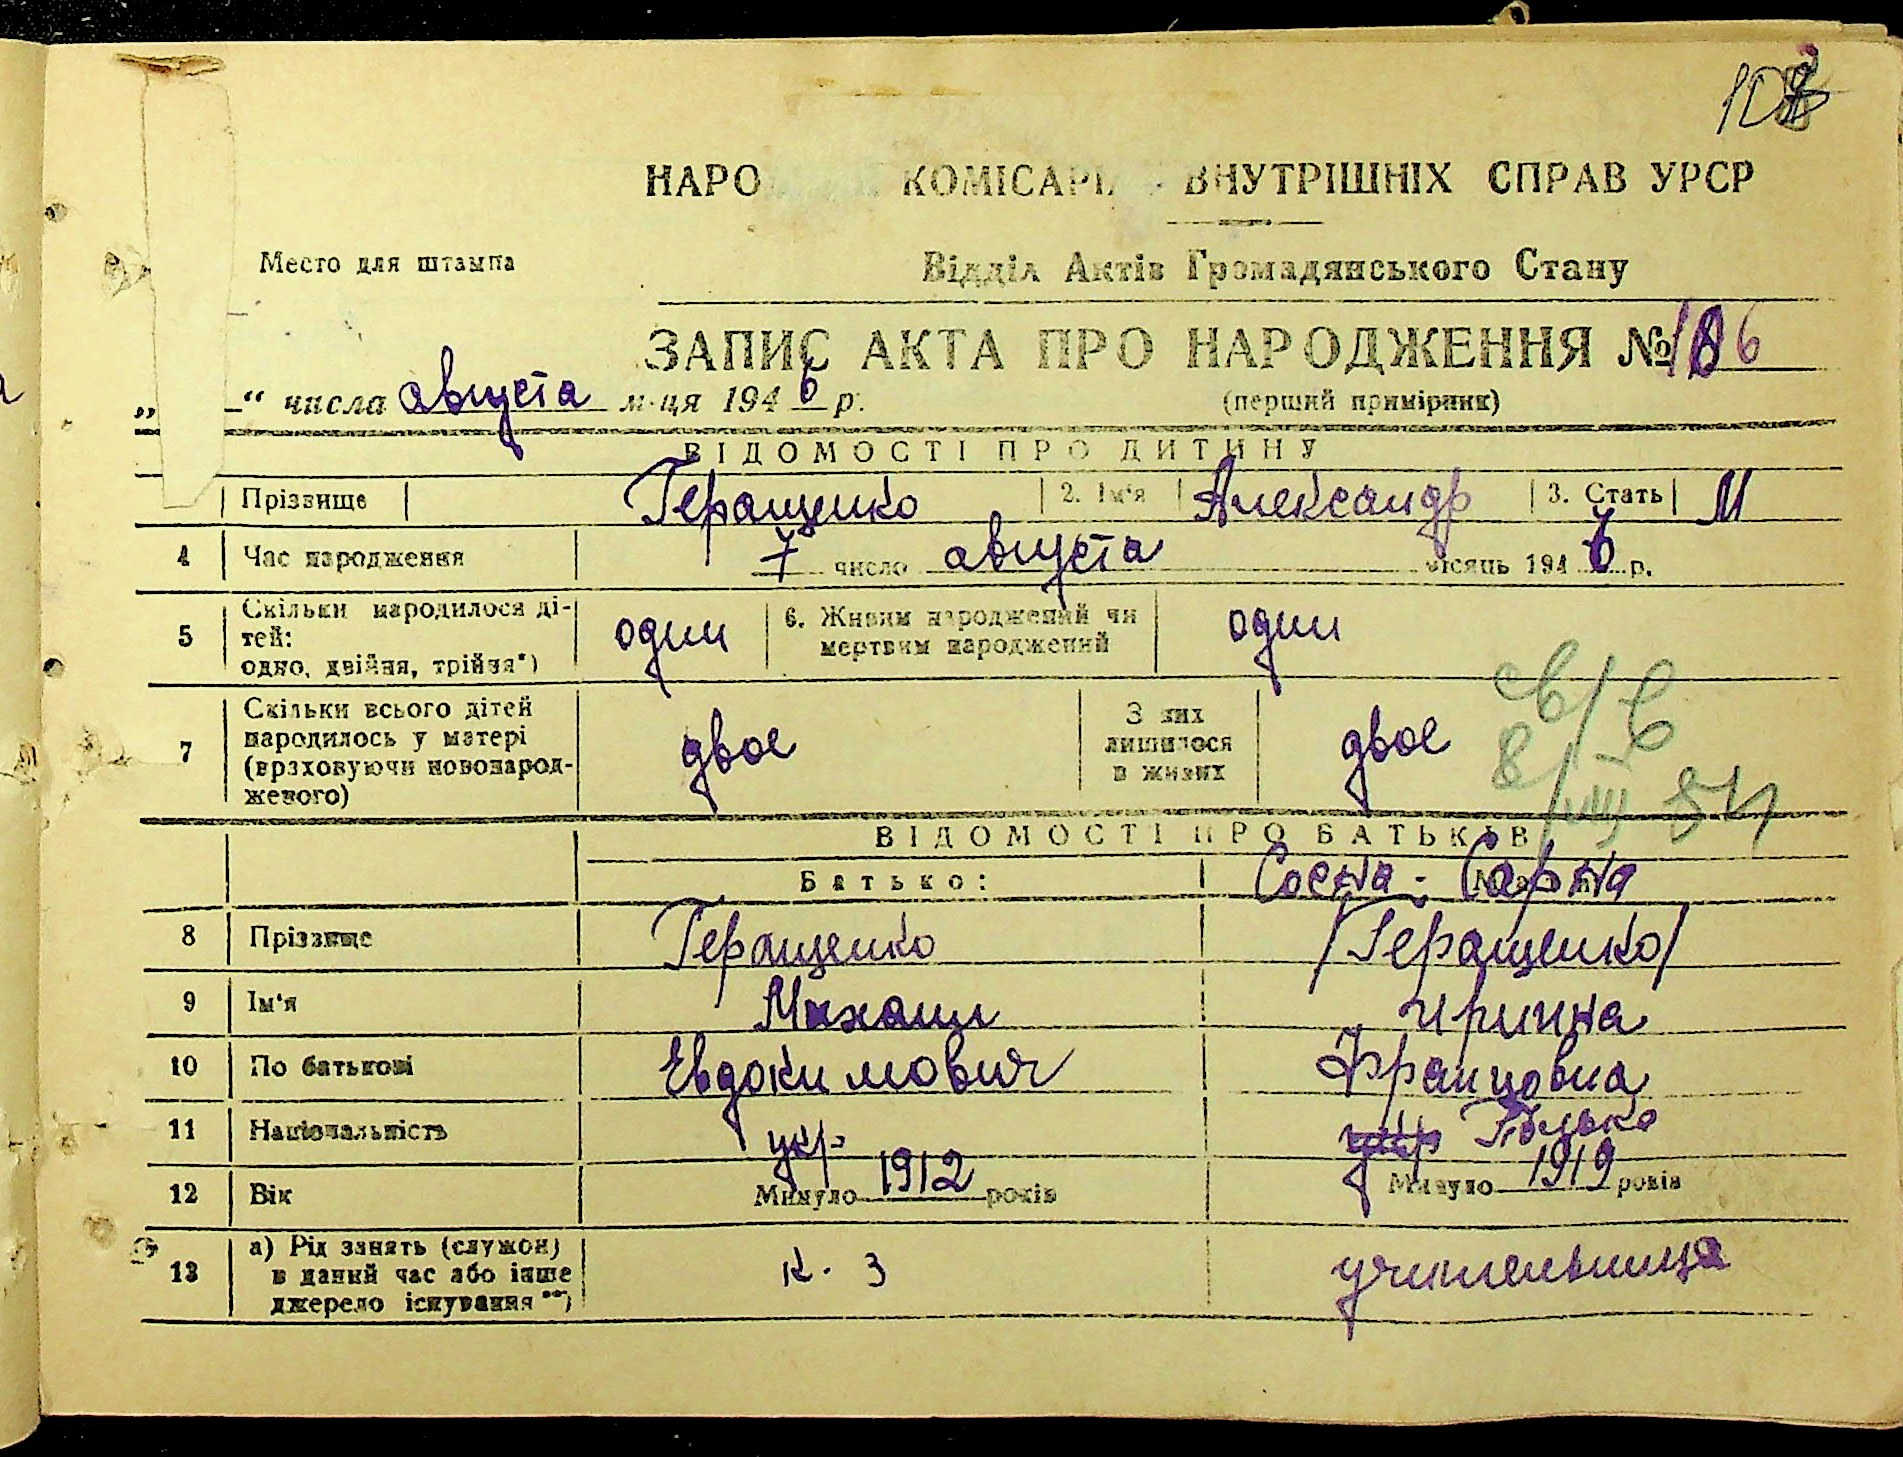 НАРО КОМІСАРІ ВНУТРІШНІХ СПРАВ УРСР
Место для штампа
Відділ Актів Громадянського Стану
ЗАПИС АКТА ПРО НАРОДЖЕННЯ № 106
„ “ числа августа м-ця 1946 р.
(перший примірник)
ВІДОМОСТІ ПРО ДИТИНУ
Прізвище Геращенко 2. Ім'я Александр 3. Стать М
4 Час народження 7 число августа місяць 1946 р.
5 Скільки народилося ді-
тей:
одно, двійня, трійня*) один 6. Живим народжений чи
мертвим народжений один
7 Скільки всього дітей
народилось у матері
(враховуючи новонарод-
женого) двое З них
лишилося
в живих двое
8/VIII 54
ВІДОМОСТІ ПРО БАТЬКІВ
Батько: Сосна-
8 Прізвище Геращенко /Геращенко/
9 Ім'я Михаил Ирина
10 По батькові Евдокимович Францовна
11 Національність укр. укр Полька
12 Вік Минуло 1912 років Минуло 1919 років
13 а) Рід занять (служби)
в даний час або інше
джерело існування **) к. з учительница